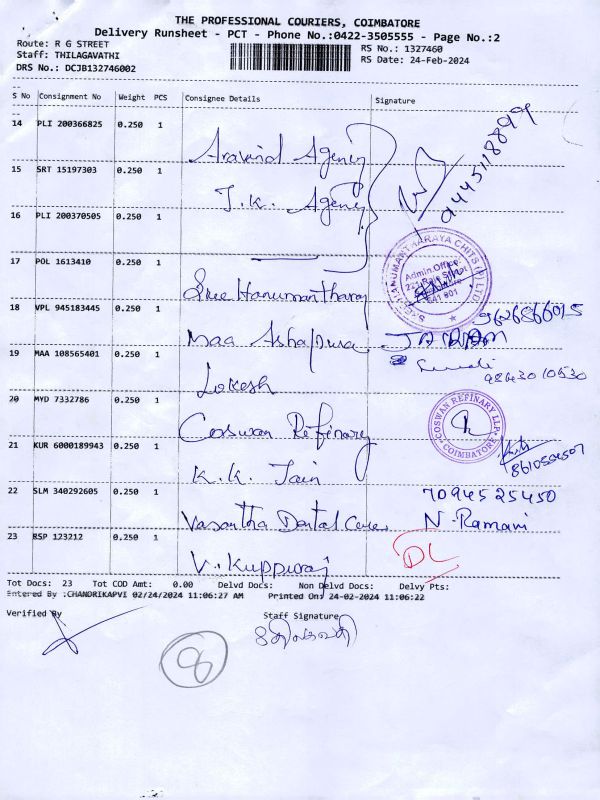 THE PROFESSIONAL COURIERS, COIMBATORE
Delivery Runsheet - PCT - Phone No.:0422-3505555 - Page No.:2
Route: R G STREET RS No.: 1327460
Staff: THILAGAVATHI RS Date: 24-Feb-2024
DRS No.: DCJB132746002
S No Consignment No Weight PCS Consignee Details Signature
14 PLI 200366825 0.250 1 Aravind Agency
9445118899
15 SRT 15197303 0.250 1 J.K. Agency
16 PLI 200370505 0.250 1
17 POL 1613410 0.250 1 Sree Hanumantharay
SREE HANUMANTHARAYA CHITS (P) LTD
Admin Office:
641 001
18 VPL 945183445 0.250 1 Maa Ashapura 9626866015
19 MAA 108565401 0.250 1 Lokesh
20 MYD 7332786 0.250 1 Coswan Refinary
COSWAN REFINARY LLP
COIMBATORE
21 KUR 6000189943 0.250 1 K.K. Jain
22 SLM 340292605 0.250 1 Vasantha Dental Care 7094525450
N. Ramani
23 RSP 123212 0.250 1 V. Kuppuraj DL
Tot Docs: 23 Tot COD Amt: 0.00 Delvd Docs: Non Delvd Docs: Delvy Pts:
Entered By :CHANDRIKAPVI 02/24/2024 11:06:27 AM Printed On: 24-02-2024 11:06:22
Verified By Staff Signature
8